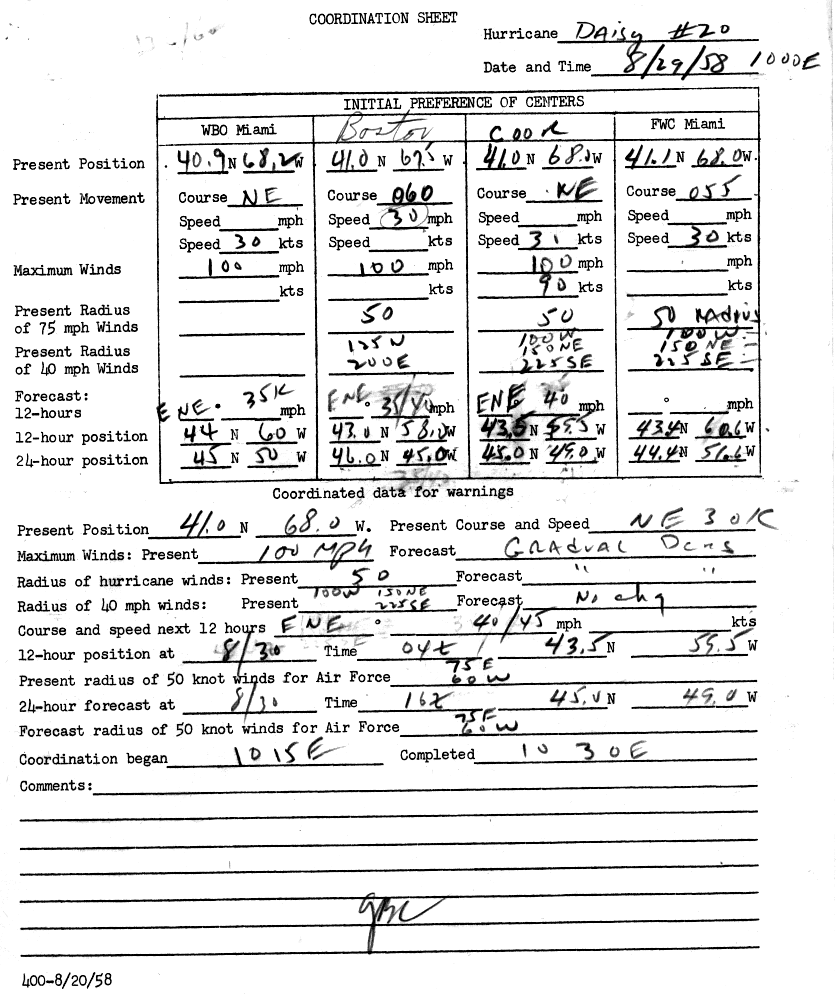 COORDINATION SHEET
Hurricane Daisy #20
Date and Time 8/29/58 1000E
INITIAL PREFERENCE OF CENTERS
WBO Miami Boston COOR FWC Miami
Present Position 40.9 N 68.2 W 41.0 N 67.5 W 41.0 N 68.0 W 41.1 N 68.0 W.
Present Movement Course NE Course 060 Course NE Course 055
Speed mph Speed 30 mph Speed mph Speed mph
Speed 30 kts Speed kts Speed 31 kts Speed 30 kts
Maximum Winds 100 mph 100 mph 100 mph mph
kts kts 90 kts kts
Present Radius of 75 mph Winds 50 50 50 Radius
Present Radius of 40 mph Winds 125N 200E 100W 150NE 225SE 100W 150NE 225SE
Forecast:
12-hours ENE 35K mph ENE ° 35/40 mph ENE 40 mph ° mph
12-hour position 44 N 60 W 43.0 N 58.0 W 43.5 N 59.5 W 43.4 N 60.6 W
24-hour position 45 N 50 W 46.0 N 45.0 W 45.0 N 49.0 W 44.4 N 51.6 W
Coordinated data for warnings
Present Position 41.0 N 68.0 W. Present Course and Speed NE 30K
Maximum Winds: Present 100 MPH Forecast Gradual
Radius of hurricane winds: Present 50 Forecast " "
Radius of 40 mph winds: Present 100W 150NE 225SE Forecast No chg
Course and speed next 12 hours ENE ° 40/45 mph kts
12-hour position at 8/30 Time 04Z 43.5 N 59.5 W
Present radius of 50 knot winds for Air Force 75E 60W
24-hour forecast at 8/30 Time 16Z 45.0 N 49.0 W
Forecast radius of 50 knot winds for Air Force 75E 60W
Coordination began 1015E Completed 1030E
Comments:
400-8/20/58